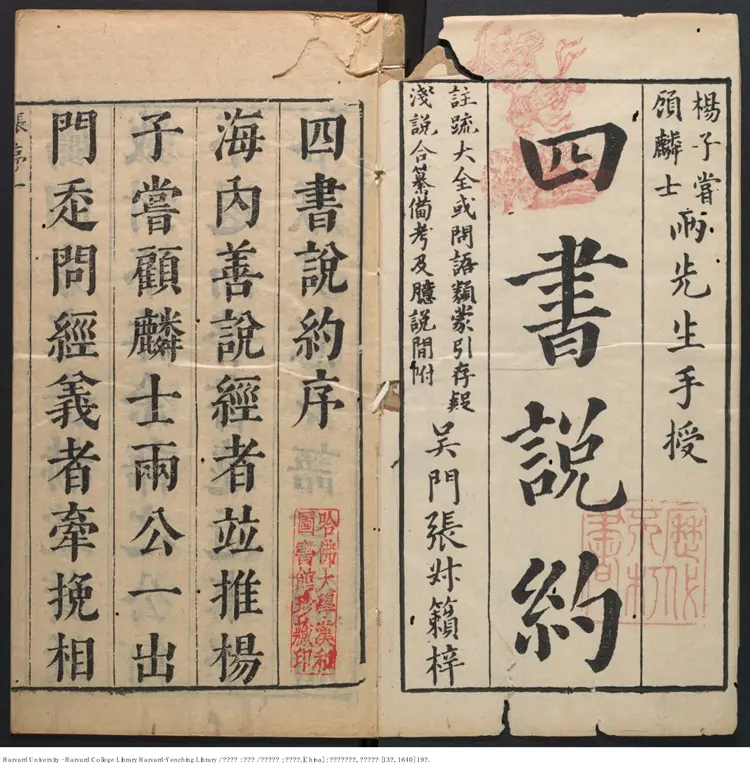 楊子嘗
頋麟士
兩先生手授
四書說約
註疏大全或問語類蒙引存疑
淺說合纂備考及臆說間附
吳門張尗籟梓
四書說約序
哈佛大學漢和
圖書館珍藏印
海內善說經者竝推楊
子嘗顧麟士兩公一出
門問經義者牽挽相
張序一
Harvard University - Harvard College Library Harvard-Yenching Library / ???? : ??? / ????? ; ????. [China] : ???????, ????? [13?, 1640] 19?.